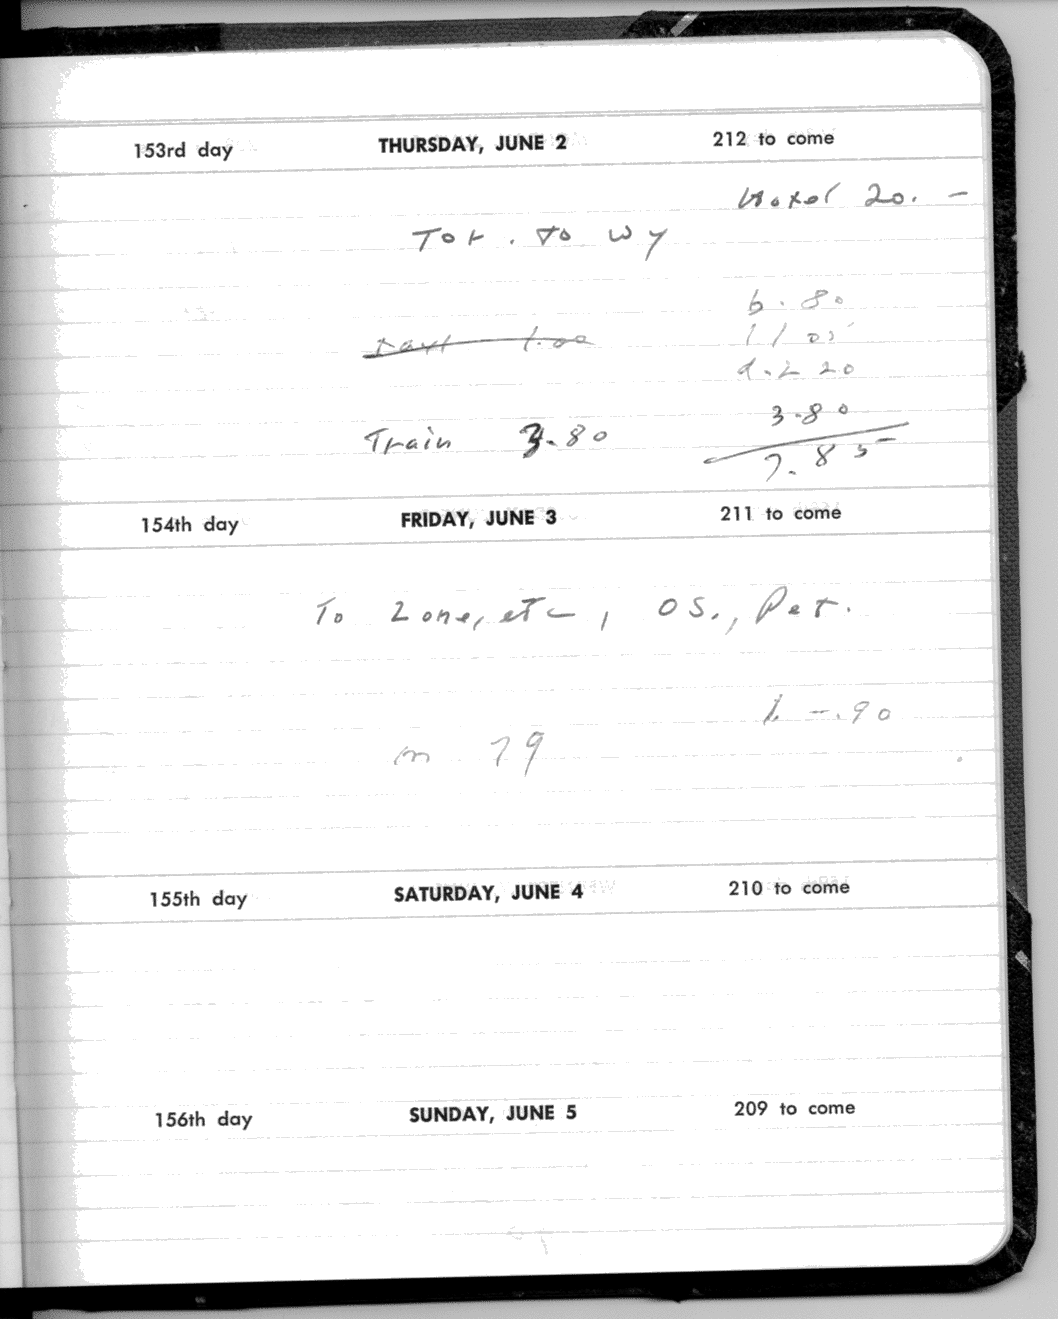 153rd day THURSDAY, JUNE 2 212 to come
Hotel 20. —
Tor. to Wy
b. .80
taxi 1.00
l 1 05
d. 2 20
3.80
Train 3.80
7.85
154th day FRIDAY, JUNE 3 211 to come
To Zone, etc, OS., Pet.
b —.90
m 79
155th day SATURDAY, JUNE 4 210 to come
156th day SUNDAY, JUNE 5 209 to come